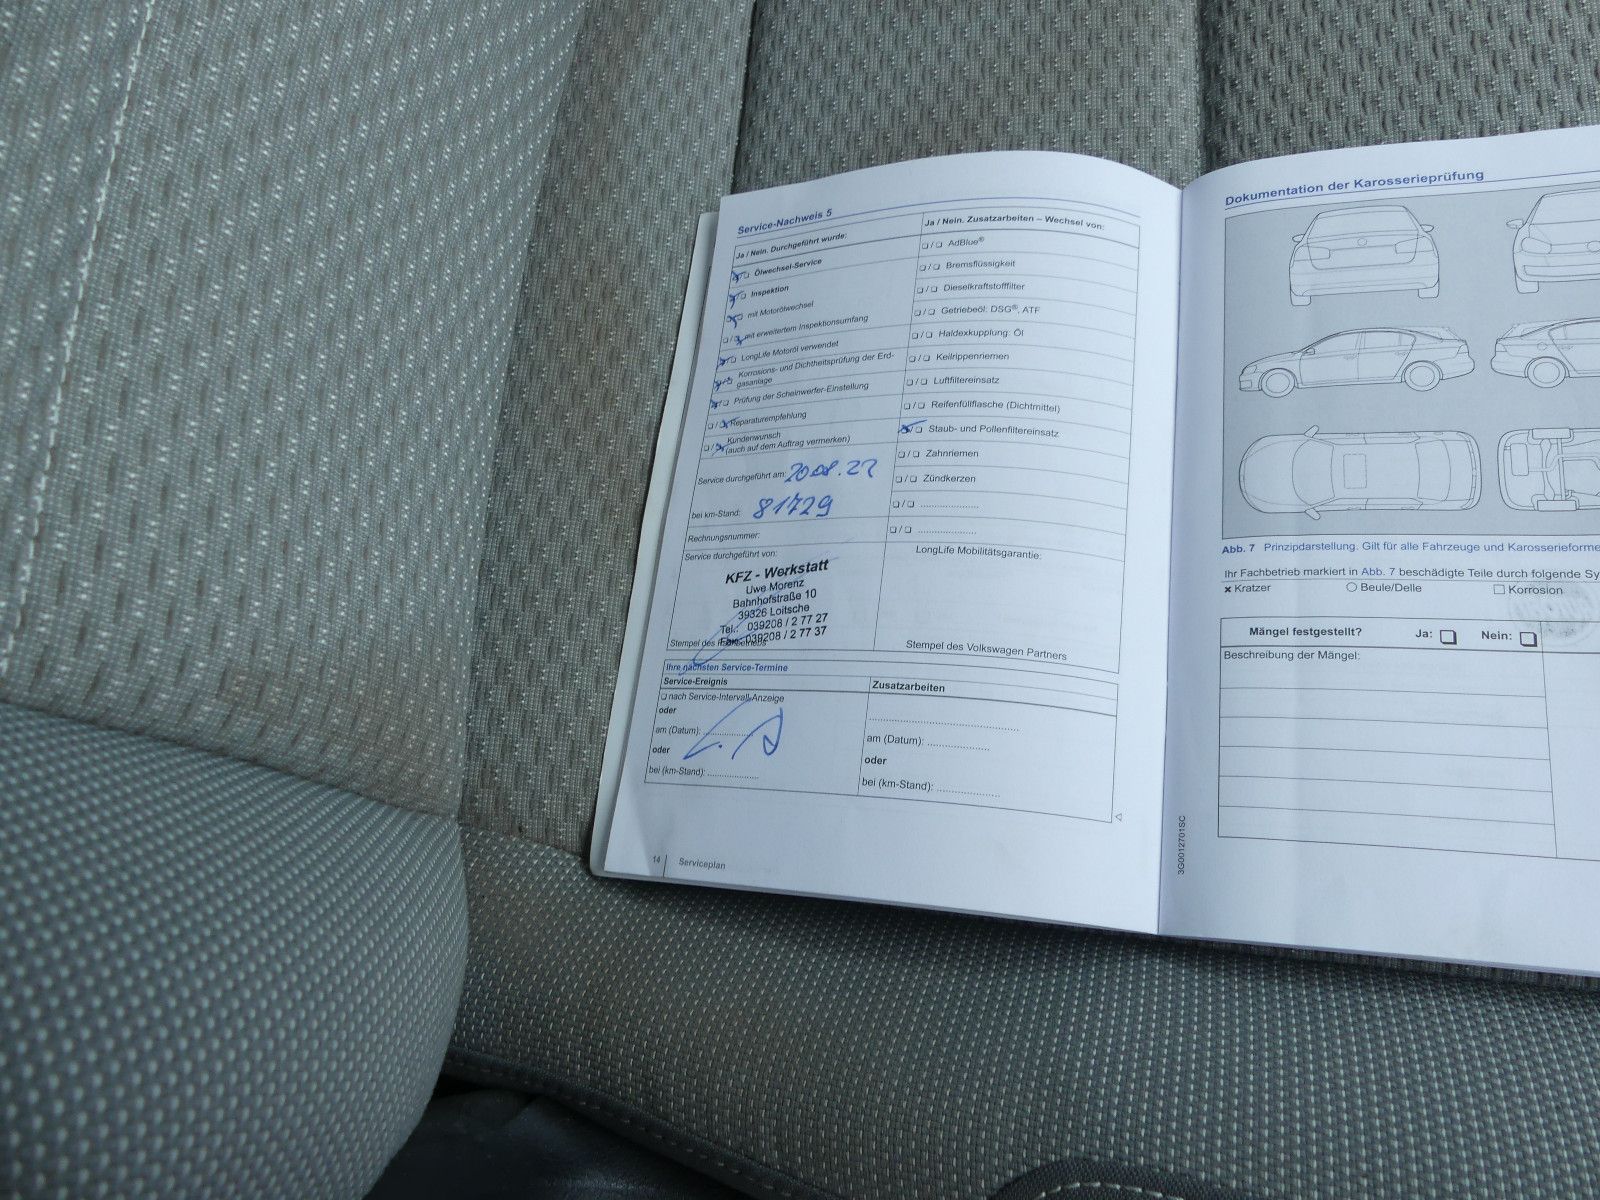 Service-Nachweis 5
Ja / Nein. Durchgeführt wurde:
❑ Ölwechsel-Service
❑ Inspektion
❑ mit Motorölwechsel
❑ / mit erweitertem Inspektionsumfang
❑ LongLife Motoröl verwendet
❑ Korrosions- und Dichtheitsprüfung der Erd-
gasanlage
❑ Prüfung der Scheinwerfer-Einstellung
❑ / Reparaturempfehlung
❑ / Kundenwunsch
(auch auf dem Auftrag vermerken)
Service durchgeführt am: 20.08.22
bei km-Stand: 81729
Rechnungsnummer:
Service durchgeführt von:
KFZ - Werkstatt
Uwe Morenz
Bahnhofstraße 10
39326 Loitsche
Tel.: 039208 / 2 77 27
Fax: 039208 / 2 77 37
Stempel des Fachbetriebs
Ja / Nein. Zusatzarbeiten – Wechsel von:
❑ / ❑ AdBlue®
❑ / ❑ Bremsflüssigkeit
❑ / ❑ Dieselkraftstofffilter
❑ / ❑ Getriebeöl: DSG®, ATF
❑ / ❑ Haldexkupplung: Öl
❑ / ❑ Keilrippenriemen
❑ / ❑ Luftfiltereinsatz
❑ / ❑ Reifenfüllflasche (Dichtmittel)
/ ❑ Staub- und Pollenfiltereinsatz
❑ / ❑ Zahnriemen
❑ / ❑ Zündkerzen
❑ / ❑ .....................
❑ / ❑ .....................
LongLife Mobilitätsgarantie:
Stempel des Volkswagen Partners
Ihre nächsten Service-Termine
Service-Ereignis
❑ nach Service-Intervall-Anzeige
oder
am (Datum): ..................
oder
bei (km-Stand): ..................
Zusatzarbeiten
..................................................
am (Datum): .....................
oder
bei (km-Stand): .....................
14 Serviceplan
Dokumentation der Karosserieprüfung
Abb. 7 Prinzipdarstellung. Gilt für alle Fahrzeuge und Karosserieforme
Ihr Fachbetrieb markiert in Abb. 7 beschädigte Teile durch folgende Sy
× Kratzer ○ Beule/Delle □ Korrosion
Mängel festgestellt? Ja: ❑ Nein: ❑
Beschreibung der Mängel:
3G0012701SC